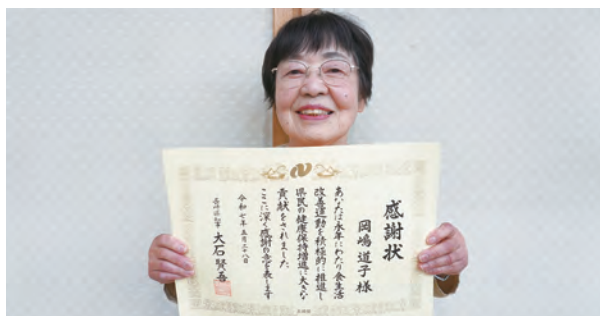 感謝状
岡嶋道子様
あなたは永年にわたり食生活
改善運動を積極的に推進し
県民の健康保持増進に大きな
貢献をされました
ここに深く感謝の意を表します
令和七年五月二十八日
長崎県知事 大石賢吾